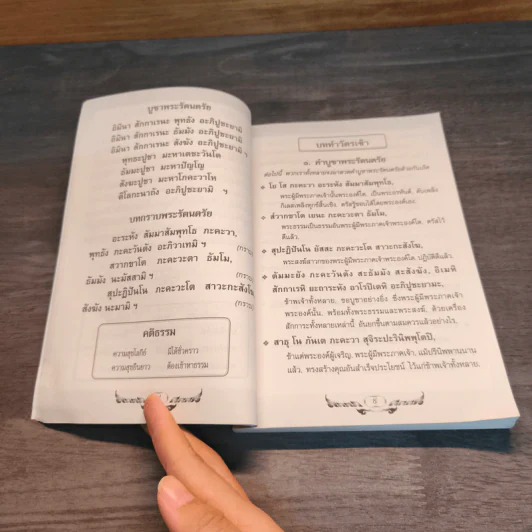 บูชาพระรัตนตรัย
อิมินา สักกาเรนะ พุทธัง อะภิปูชะยามิ
อิมินา สักกาเรนะ ธัมมัง อะภิปูชะยามิ
อิมินา สักกาเรนะ สังฆัง อะภิปูชะยามิ ฯ
พุทธะปูชา มะหาเตชะวันโต
ธัมมะปูชา มะหาปัญโญ
สังฆะปูชา มะหาโภคะวาโห
ติโลกะนาถัง อะภิปูชะยามิ ฯ
บทกราบพระรัตนตรัย
อะระหัง สัมมาสัมพุทโธ ภะคะวา,
พุทธัง ภะคะวันตัง อะภิวาเทมิ ฯ (กราบ)
สวากขาโต ภะคะวะตา ธัมโม,
ธัมมัง นะมัสสามิ ฯ (กราบ)
สุปะฏิปันโน ภะคะวะโต สาวะกะสังโฆ,
สังฆัง นะมามิ ฯ (กราบ)
คติธรรม
ความสุขโลกีย์ มีได้ชั่วคราว
ความสุขยืนยาว ต้องเข้าหาธรรม
บททำวัตรเช้า
๑. คำบูชาพระรัตนตรัย
โย โส ภะคะวา อะระหัง สัมมาสัมพุทโธ,
พระผู้มีพระภาคเจ้านั้นพระองค์ใด, เป็นพระอรหันต์, ดับเพลิง
กิเลสเพลิงทุกข์สิ้นเชิง, ตรัสรู้ชอบได้โดยพระองค์เอง,
ส๎วากขาโต เยนะ ภะคะวะตา ธัมโม,
พระธรรมเป็นธรรมอันพระผู้มีพระภาคเจ้าพระองค์ใด, ตรัสไว้
ดีแล้ว,
สุปะฏิปันโน ยัสสะ ภะคะวะโต สาวะกะสังโฆ,
พระสงฆ์สาวกของพระผู้มีพระภาคเจ้าพระองค์ใด, ปฏิบัติดีแล้ว,
ตัมมะยัง ภะคะวันตัง สะธัมมัง สะสังฆัง, อิเมหิ
สักกาเรหิ ยะถาระหัง อาโรปิเตหิ อะภิปูชะยามะ,
ข้าพเจ้าทั้งหลาย, ขอบูชาอย่างยิ่ง ซึ่งพระผู้มีพระภาคเจ้า
พระองค์นั้น, พร้อมทั้งพระธรรมและพระสงฆ์, ด้วยเครื่อง
สักการะทั้งหลายเหล่านี้ อันยกขึ้นตามสมควรแล้วอย่างไร,
สาธุ โน ภันเต ภะคะวา สุจิระปะรินิพพุโตปิ,
ข้าแต่พระองค์ผู้เจริญ, พระผู้มีพระภาคเจ้า, แม้ปรินิพพานนาน
แล้ว, ทรงสร้างคุณอันสำเร็จประโยชน์ ไว้แก่ข้าพเจ้าทั้งหลาย,